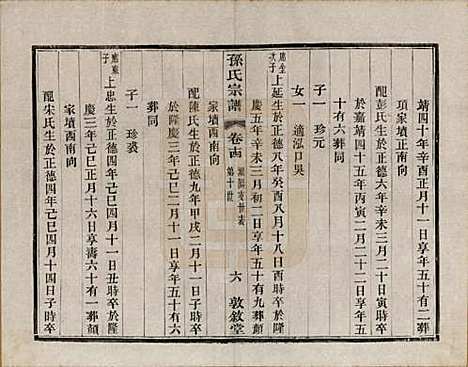 靖四十年辛酉正月十一日享年五十有二葬
項家墳正南向
配彭氏生於正德六年辛未三月二十日寅時卒
於嘉靖四十五年丙寅二月二十二日享年五
十有六葬同
子一 珍元
女一 適泓口吳
次子 上延生於正德八年癸酉八月十八日酉時卒於隆
慶五年辛未三月初二日享年五十有九葬顏
家墳酉南向
孫氏宗譜
卷十四
第十世
六
敦敘堂
配陳氏生於正德九年甲戌二月十一日時卒
於隆慶三年己巳二月十一日享年五十有六
葬同
子一 珍裘
子 上忠生於正德四年己巳四月十一日丑時卒於隆
慶三年己巳正月十六日享壽六十有一葬顏
家墳酉南向
配宋氏生於正德四年己巳四月十四日子時卒